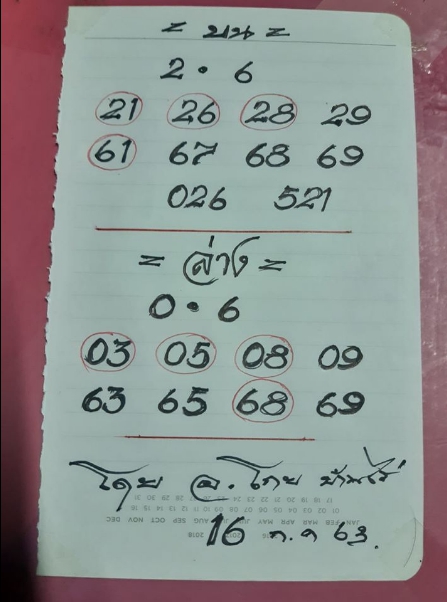 = บน =
2 • 6
21 26 28 29
61 67 68 69
026 521
= ล่าง =
0 • 6
03 05 08 09
63 65 68 69
โดย อ. โทย บ้านไร่
16 ก.ค 63.